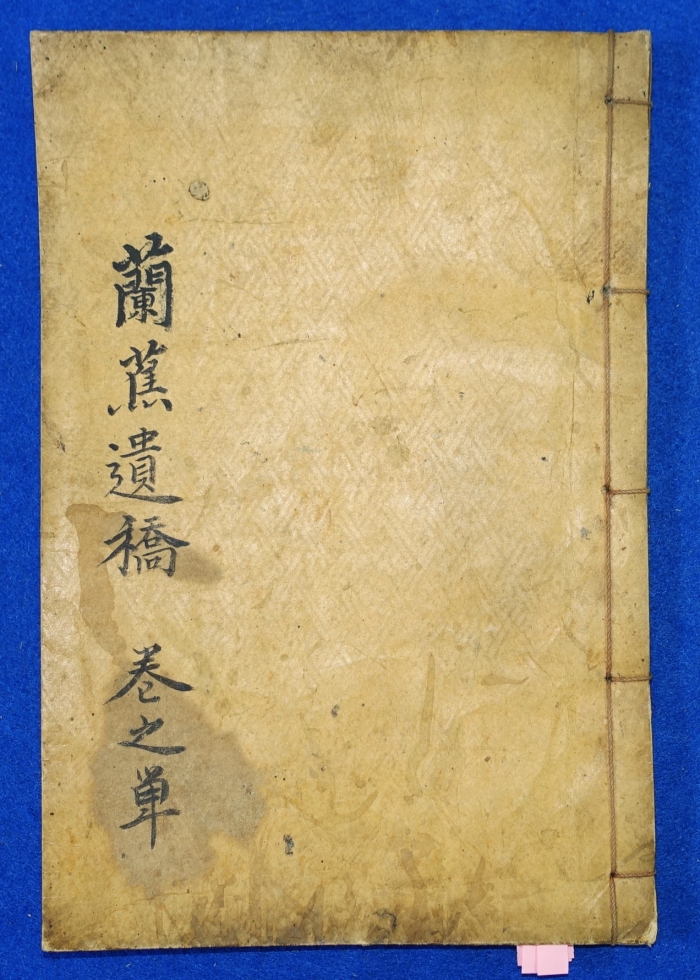 蘭蕉遺稿 卷之単